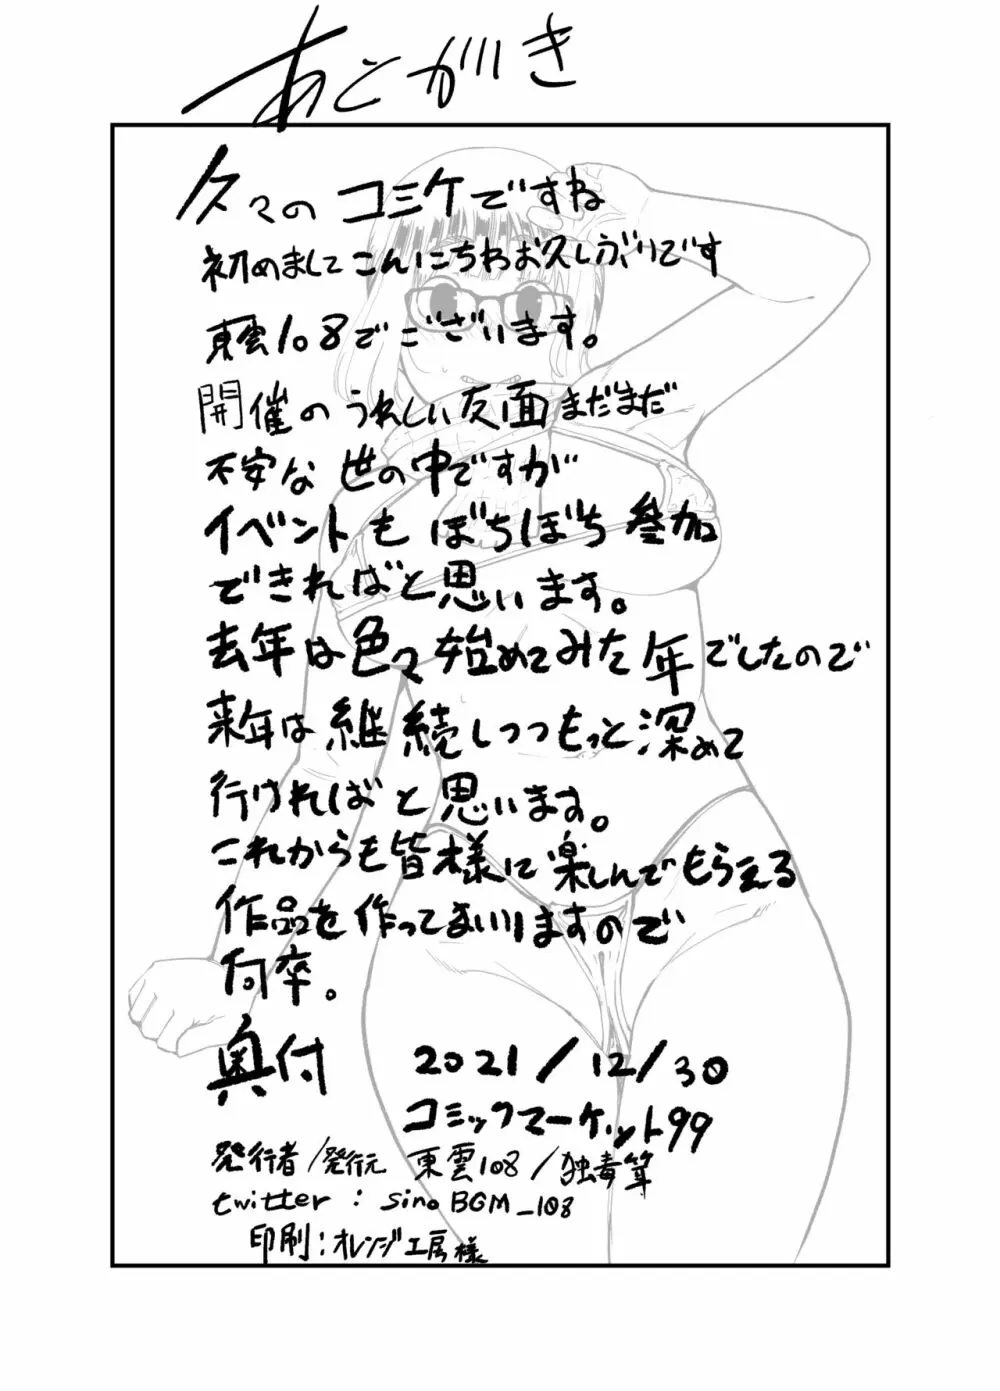 あとがき
久々のコミケですね
初めましてこんにちわお久しぶりです
東雲108でございます。
開催のうれしい反面まだまだ
不安な世の中ですが
イベントもぼちぼち参加
できればと思います。
去年は色々始めてみた年でしたので
来年は継続しつつもっと深めて
行ければと思います。
これからも皆様に楽しんでもらえる
作品を作ってまいりますので
何卒。
奥付 2021/12/30
コミックマーケット99
発行者/発行元 東雲108/独毒
twitter : sinoBGM_108
印刷:オレンジ工房様